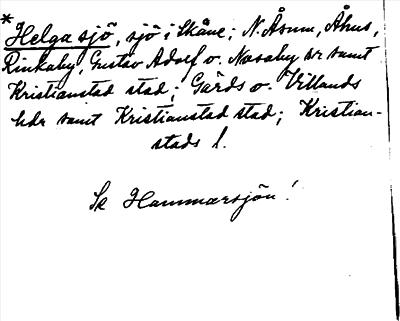 * Helga sjö, sjö i Skåne; N. Åsum, Åhus,
Rinkaby, Gustav Adolf o. Nosaby sn samt
Kristianstad stad; Gärds o. Villands
hdr samt Kristianstad stad; Kristian-
stads l.
Se Hammarsjön!